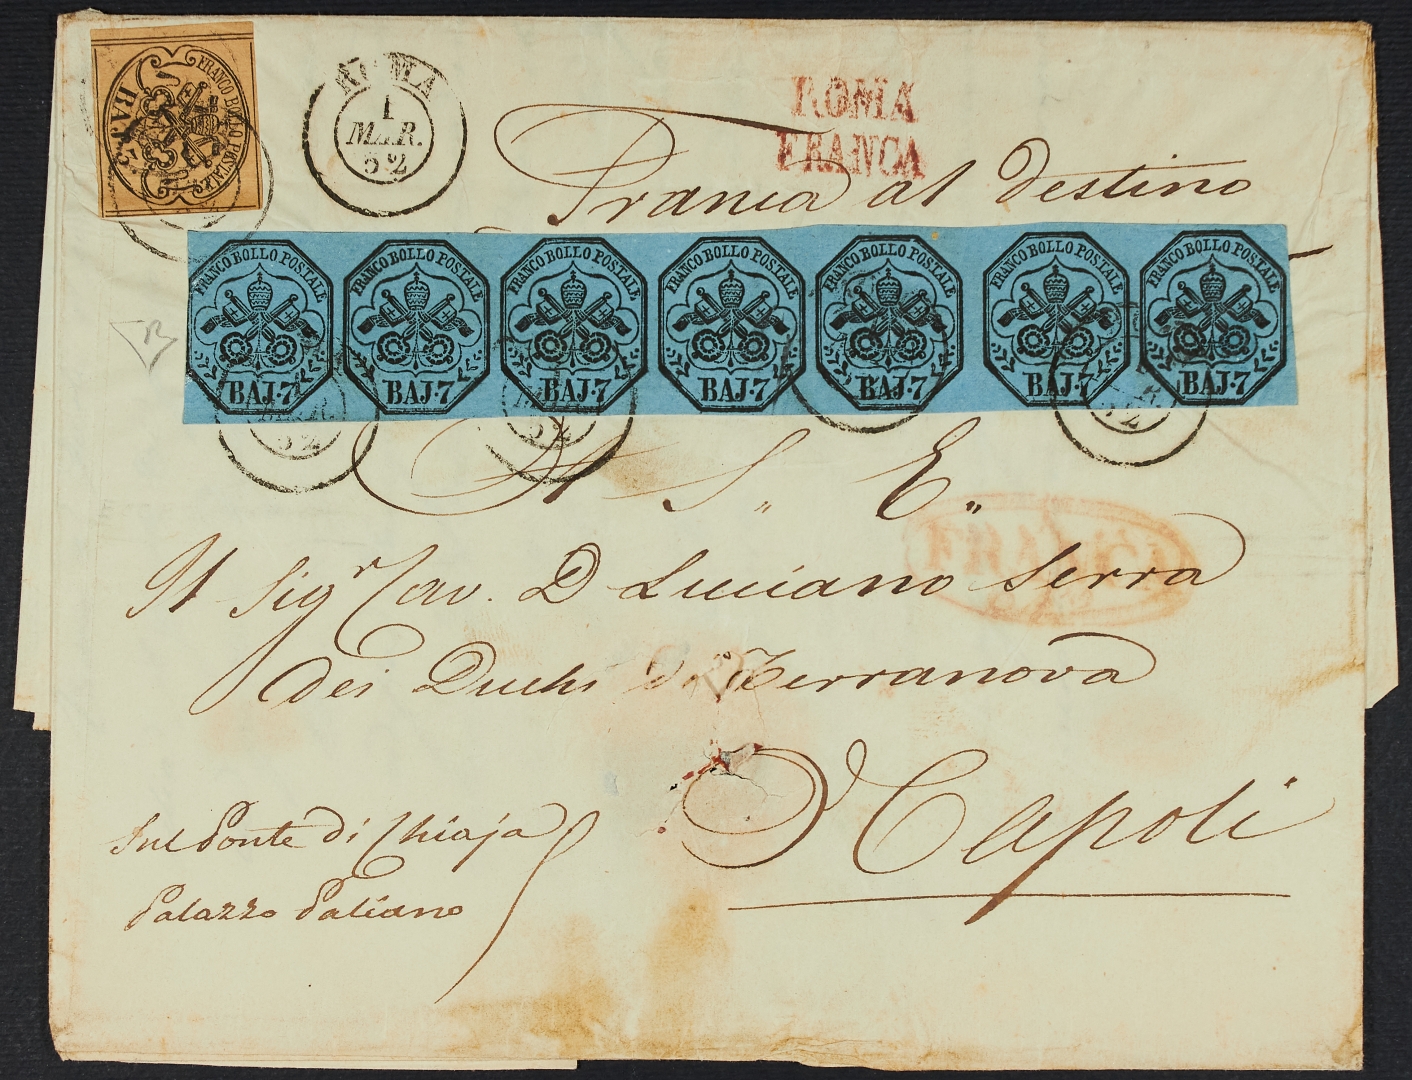 FRANCO BOLLO POSTALE
BAJ.
ROMA
1
MAR.
52
ROMA
FRANCA
Franca al destino
FRANCO BOLLO POSTALE FRANCO BOLLO POSTALE FRANCO BOLLO POSTALE FRANCO BOLLO POSTALE FRANCO BOLLO POSTALE FRANCO BOLLO POSTALE FRANCO BOLLO POSTALE
BAJ.7 BAJ.7 BAJ.7 BAJ.7 BAJ.7 BAJ.7 BAJ.7
MAR.
52
52
A S. E.
Il Sigr Cav. D Luciano Serra
dei Duchi di Terranova
Napoli
Sul Ponte di Chiaja
Palazzo Paliano